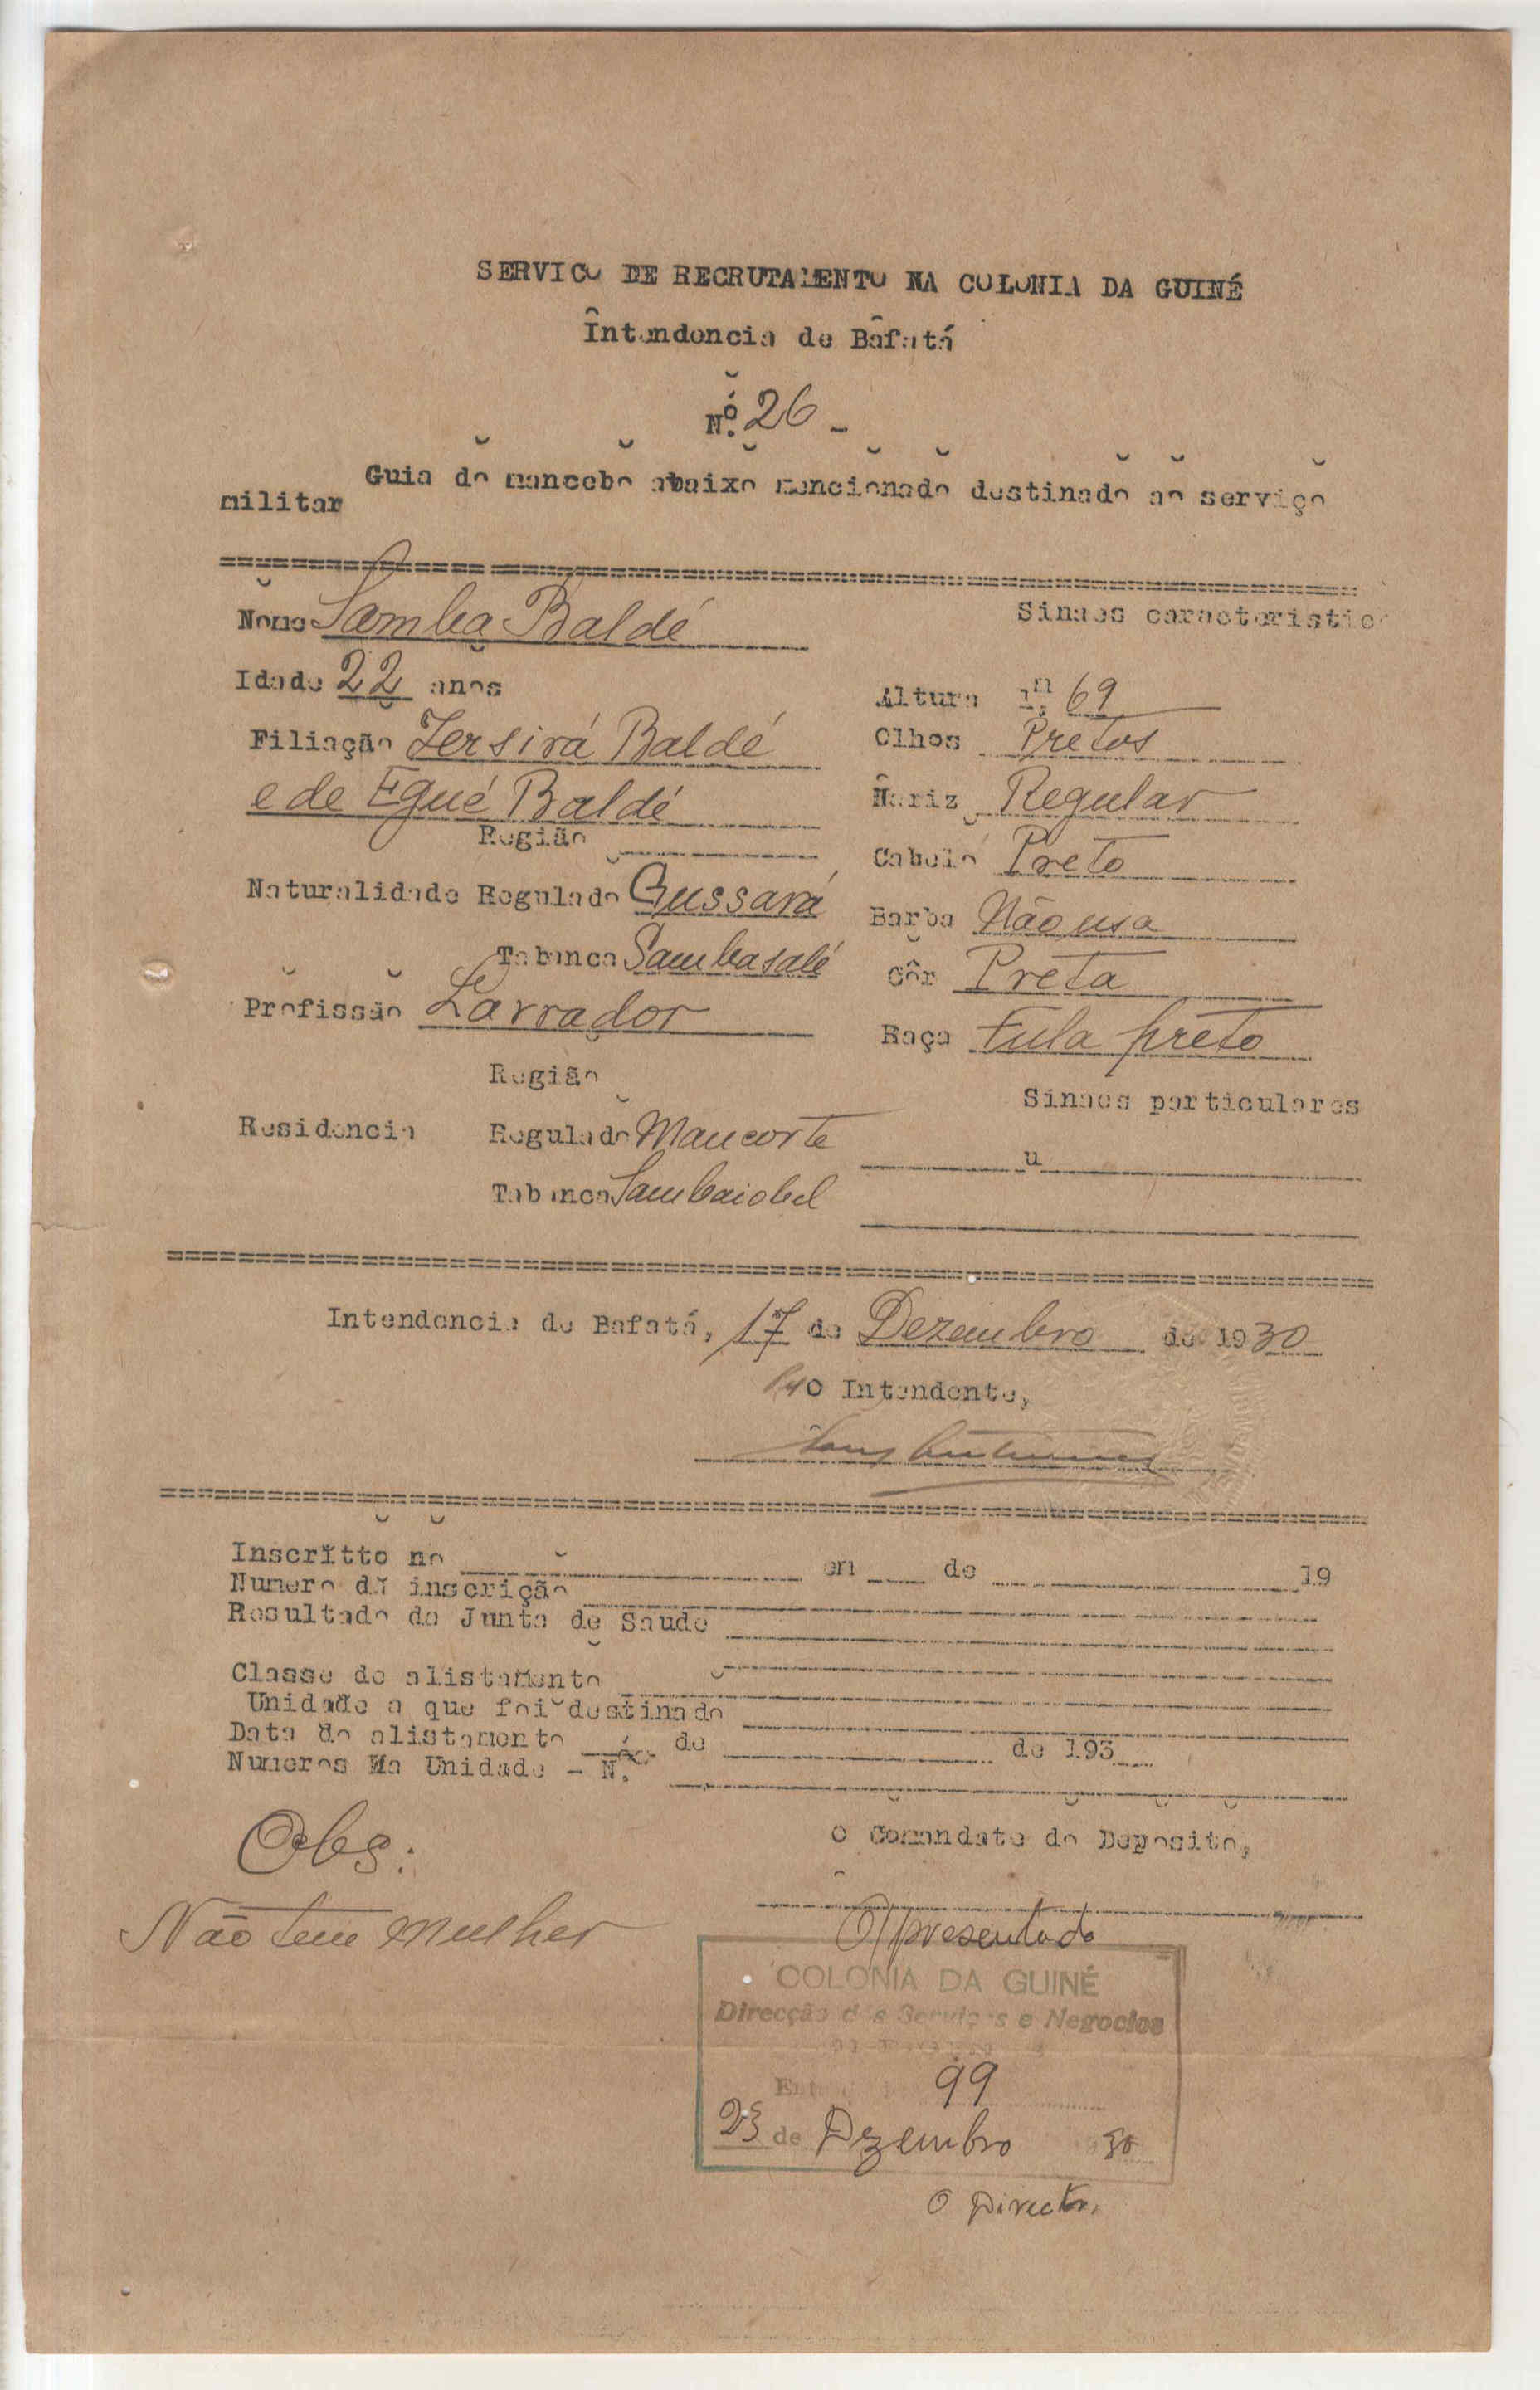 SERVICO DE RECRUTAMENTO NA COLONIA DA GUINÉ
Intendencia de Bafatá
Nº. 26 -
Guia do mancebo abaixo mencionado destinado ao serviço
militar
Nome Samba Baldé
Sinaes caracteristic
Idade 22 anos
Altura 1,m 69
Filiação Jersirá Baldé
Olhos Pretos
e de Egué Baldé
Nariz Regular
Região
Cabelo Preto
Naturalidade Regulado Gussará
Barba Não usa
Tabanca Sambasalé
Côr Preta
Profissão Lavrador
Raça Fula preto
Região
Sinaes particulares
Residencia Regulado Mancorte
u
Tabanca Sambaiobel
Intendencia de Bafatá, 17 de Dezembro de 1930
O Intendente,
Inscritto no em de 19
Numero da inscrição
Resultado da Junta de Saude
Classe de alistamento
Unidade a que foi destinado
Data do alistamento de de 193
Numeros Na Unidade - N.
Obs:
O Comandate do Deposito,
Não tem mulher
Apresentado
COLONIA DA GUINÉ
Direcção dos Serviços e Negocios
99
23 de Dezembro 30
O Director,